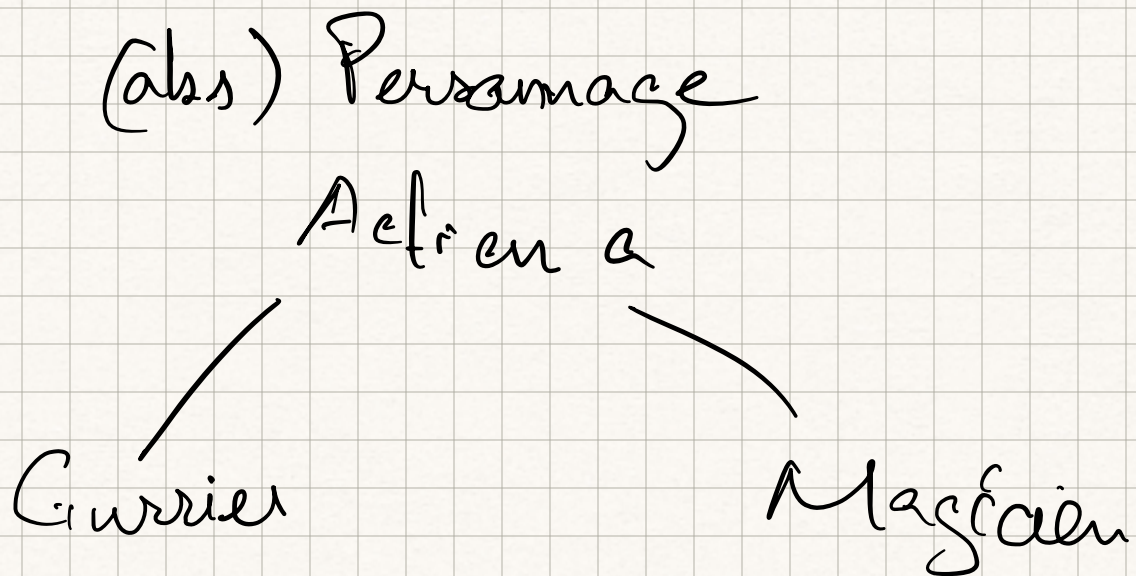 (abs) Personnage
Action a
Gurrier Magicien